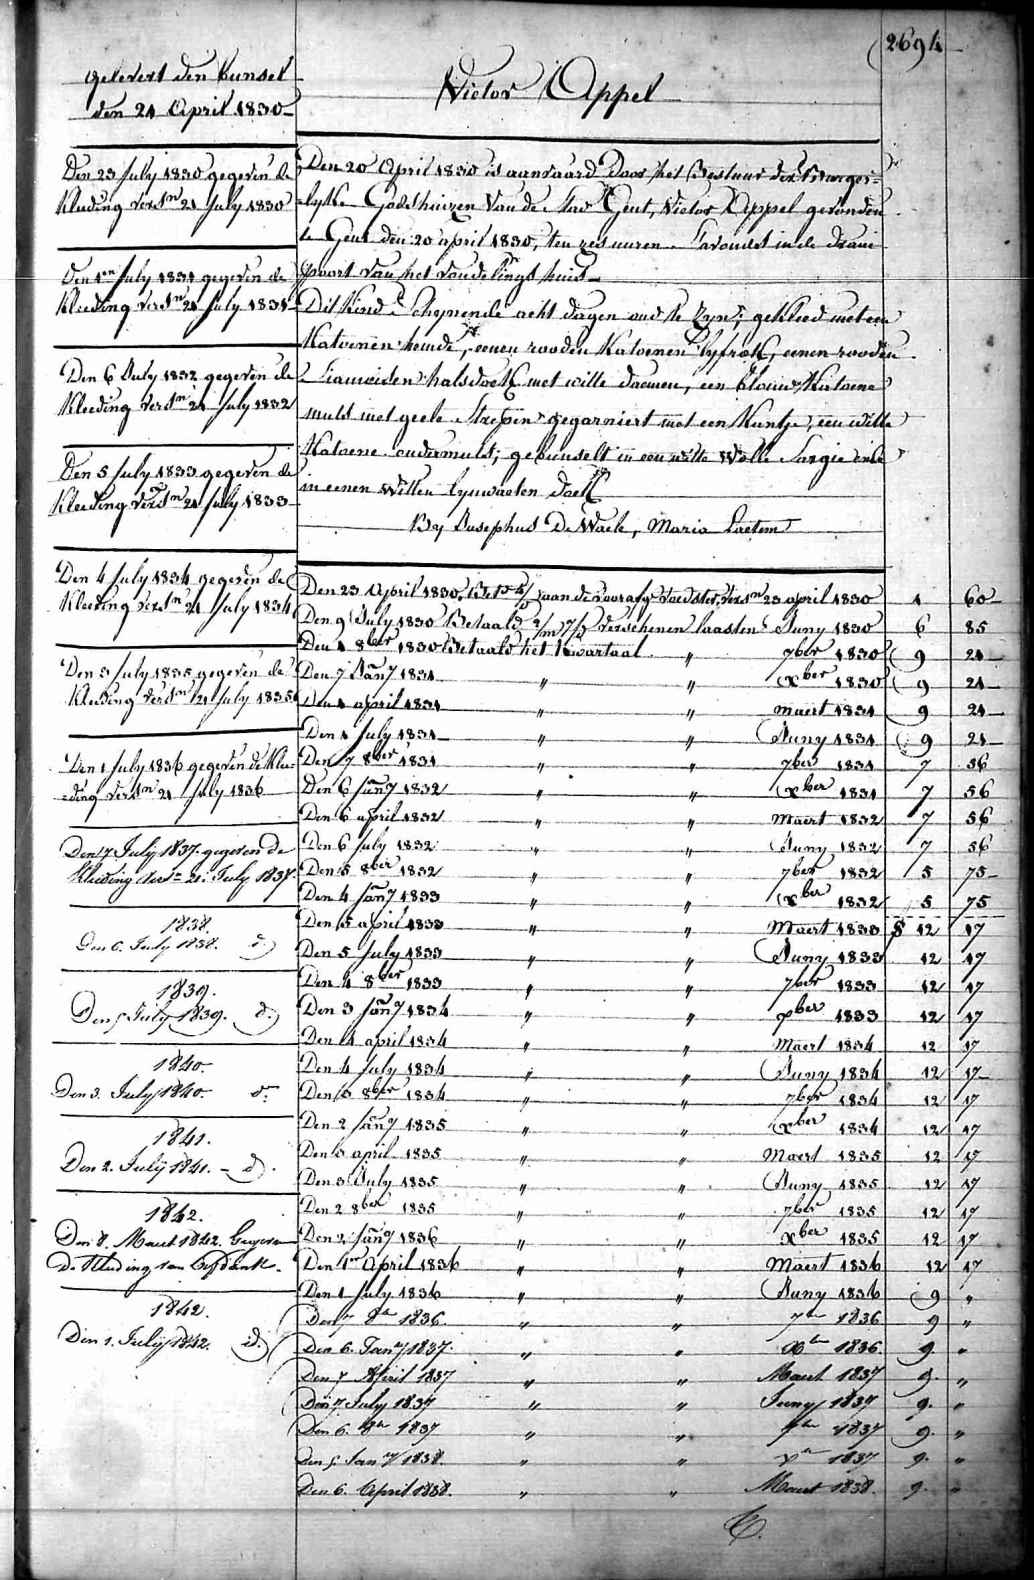 2694
gelevert den bunsel
den 21 April 1830
Victor Appel
Den 23 July 1830 gegeven de
Kleeding versn 21 July 1830
Den 1en July 1831 gegeven de
Kleeding versn 21 July 1831
Den 6 July 1832 gegeven de
Kleeding versn 21 July 1832
Den 5 July 1833 gegeven de
Kleeding versn 21 July 1833
Den 4 July 1834 gegeven de
Kleeding versn 21 July 1834
Den 3 July 1835 gegeven de
Kleeding versn 21 July 1835
Den 1 July 1836 gegeven de Klee=
=ding versn 21 July 1836
Den 7 July 1837 gegeven de
Kleeding versn 21 July 1837
1838.
Den 6. July 1838. d)
1839.
Den 5 July 1839. d)
1840.
Den 3. July 1840. do
1841.
Den 2. July 1841. - d)
1842.
Den 8. Maert 1842. Gegeven
de Kleeding van
1842.
Den 1. July 1842. id)
Den 20 April 1830 is aanvaard Door het Bestuur der Burger=
=lyke Godshuizen Van de Stad Gent, Victor Appel gevonden
te Gent den 20 april 1830, ten zes uuren S'avonds in de draai
poort van het vondelings huis
Dit Kind Schynende acht dagen oud te Zyn; gekleed met een
Katoenen hemde, eenen rooden Katoenen lyfrok, eenen rooden
Siamoisen halsdoek met witte bloemen, een blouw Katoene
muts met geele Streepen gegarniert met een Kantje, een witte
Katoene ondermuts; gebunselt in een witte Wolle Sargie ende
in eenen Witten lynwaeten doek
By Josephus De Waele, Maria Laetem
Den 23 April 1830, aan de voorafge voedster, versn 23 april 1830 1 60
Den 9 July 1830 Betaald 2/m 7/d verschenen laasten Juny 1830 6 85
Den 1 8ber 1830 Betaald het Kwartaal " 7ber 1830 9 21
Den 7 Jany 1831 " " Xber 1830 9 21
Den 1 april 1831 " " maert 1831 9 21
Den 1 July 1831 " " Juny 1831 9 21
Den 7 8ber 1831 " " 7ber 1831 7 56
Den 6 Jany 1832 " " Xber 1831 7 56
Den 6 april 1832 " " Maert 1832 7 56
Den 6 July 1832 " " Juny 1832 7 56
Den 5 8ber 1832 " " 7ber 1832 5 75
Den 4 Jany 1833 " " Xber 1832 5 75
Den 5 april 1833 " " Maert 1833 12 17
Den 5 July 1833 " " Juny 1833 12 17
Den 4 8ber 1833 " " 7ber 1833 12 17
Den 3 Jany 1834 " " Xber 1833 12 17
Den 4 april 1834 " " Maert 1834 12 17
Den 4 July 1834 " " Juny 1834 12 17
Den 3 8ber 1834 " " 7ber 1834 12 17
Den 2 Jany 1835 " " Xber 1834 12 17
Den 3 april 1835 " " Maert 1835 12 17
Den 3 July 1835 " " Juny 1835 12 17
Den 2 8ber 1835 " " 7ber 1835 12 17
Den 2 Jany 1836 " " Xber 1835 12 17
Den 1en April 1836 " " Maert 1836 12 17
Den 1 July 1836 " " Juny 1836 9 "
Den 7 8er 1836. " " 7er 1836 9 "
Den 6. Jany 1837. " " Xer 1836. 9. "
Den 7 April 1837 " " Maert 1837 9. "
Den 7 July 1837 " " Juny 1837 9. "
Den 6. 8er 1837 " " 7er 1837 9. "
Den 5 Jany 1838. " " Xer 1837 9. "
Den 6. April 1838. " " Maert 1838. 9. "